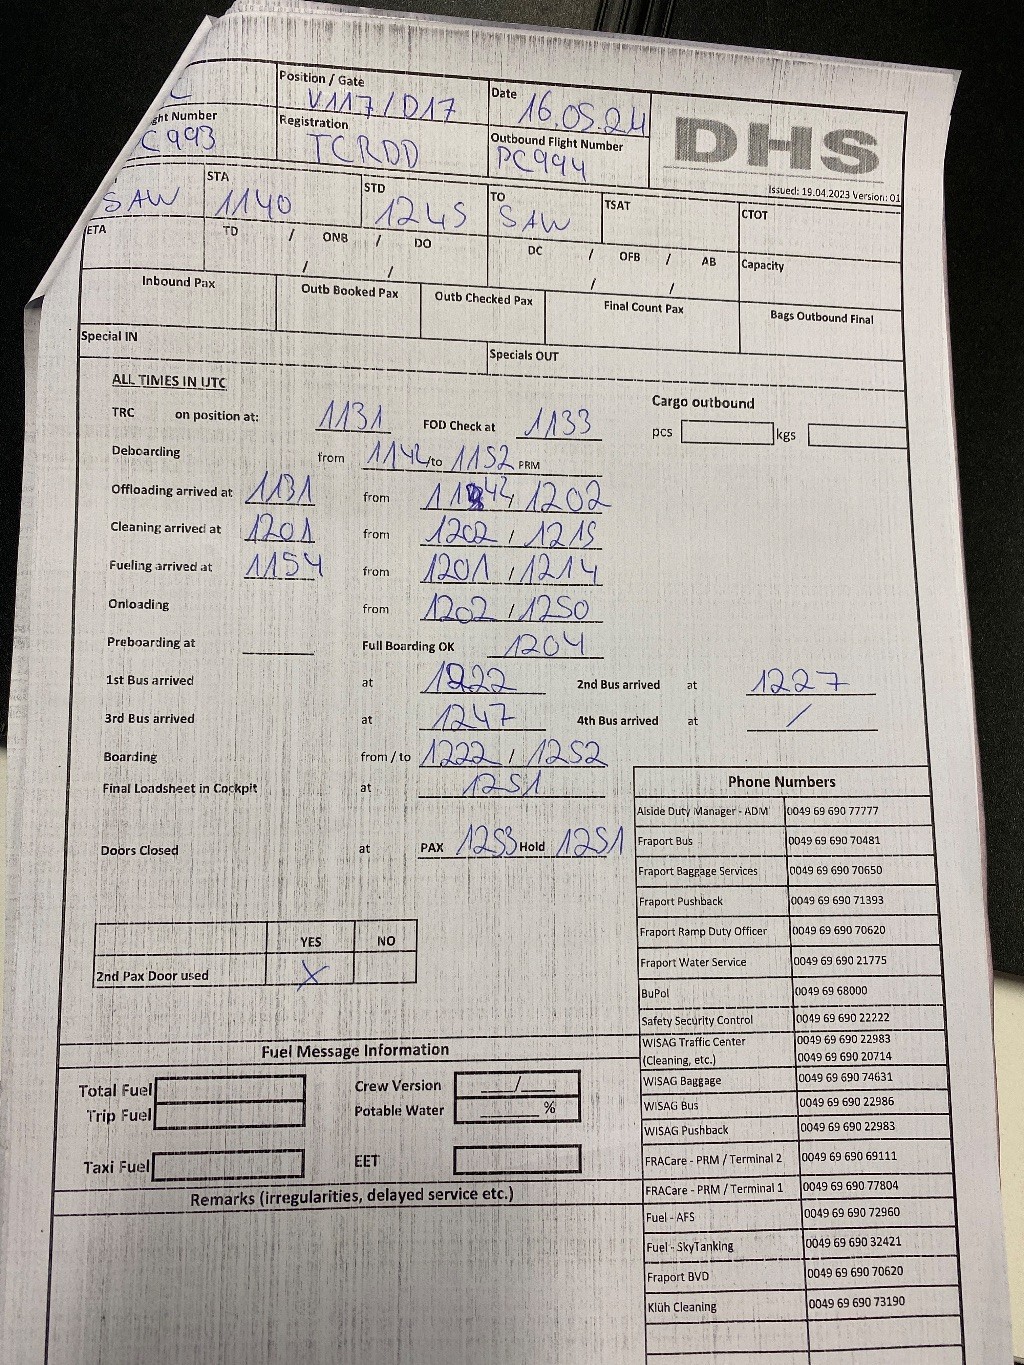 C Position / Gate V117/D17 Date 16.05.24 DHS
ght Number C993 Registration TCRDD Outbound Flight Number PC994
Issued: 19.04.2023 Version: 01
SAW STA 1140 STD 1245 TO SAW TSAT CTOT
ETA TD / ONB / DO DC / OFB / AB Capacity
/ / / /
Inbound Pax Outb Booked Pax Outb Checked Pax Final Count Pax Bags Outbound Final
Special IN Specials OUT
ALL TIMES IN UTC
Cargo outbound
TRC on position at: 1131 FOD Check at 1133 pcs kgs
Deboarding from 1142 to 1152 PRM
Offloading arrived at 1131 from 1142, 1202
Cleaning arrived at 1201 from 1202 , 1215
Fueling arrived at 1154 from 1201 , 1214
Onloading from 1202 , 1250
Preboarding at Full Boarding OK 1204
1st Bus arrived at 1222 2nd Bus arrived at 1227
3rd Bus arrived at 1247 4th Bus arrived at /
Boarding from / to 1222 , 1252
Final Loadsheet in Cockpit at 1251
Doors Closed at PAX 1253 Hold 1251
YES NO
2nd Pax Door used X
Fuel Message Information
Total Fuel Crew Version /
Trip Fuel Potable Water %
Taxi Fuel EET
Remarks (irregularities, delayed service etc.)
Phone Numbers
Aiside Duty Manager - ADM 0049 69 690 77777
Fraport Bus 0049 69 690 70481
Fraport Baggage Services 0049 69 690 70650
Fraport Pushback 0049 69 690 71393
Fraport Ramp Duty Officer 0049 69 690 70620
Fraport Water Service 0049 69 690 21775
BuPol 0049 69 68000
Safety Security Control 0049 69 690 22222
WISAG Traffic Center 0049 69 690 22983
(Cleaning, etc.) 0049 69 690 20714
WISAG Baggage 0049 69 690 74631
WISAG Bus 0049 69 690 22986
WISAG Pushback 0049 69 690 22983
FRACare - PRM / Terminal 2 0049 69 690 69111
FRACare - PRM / Terminal 1 0049 69 690 77804
Fuel - AFS 0049 69 690 72960
Fuel - SkyTanking 0049 69 690 32421
Fraport BVD 0049 69 690 70620
Klüh Cleaning 0049 69 690 73190